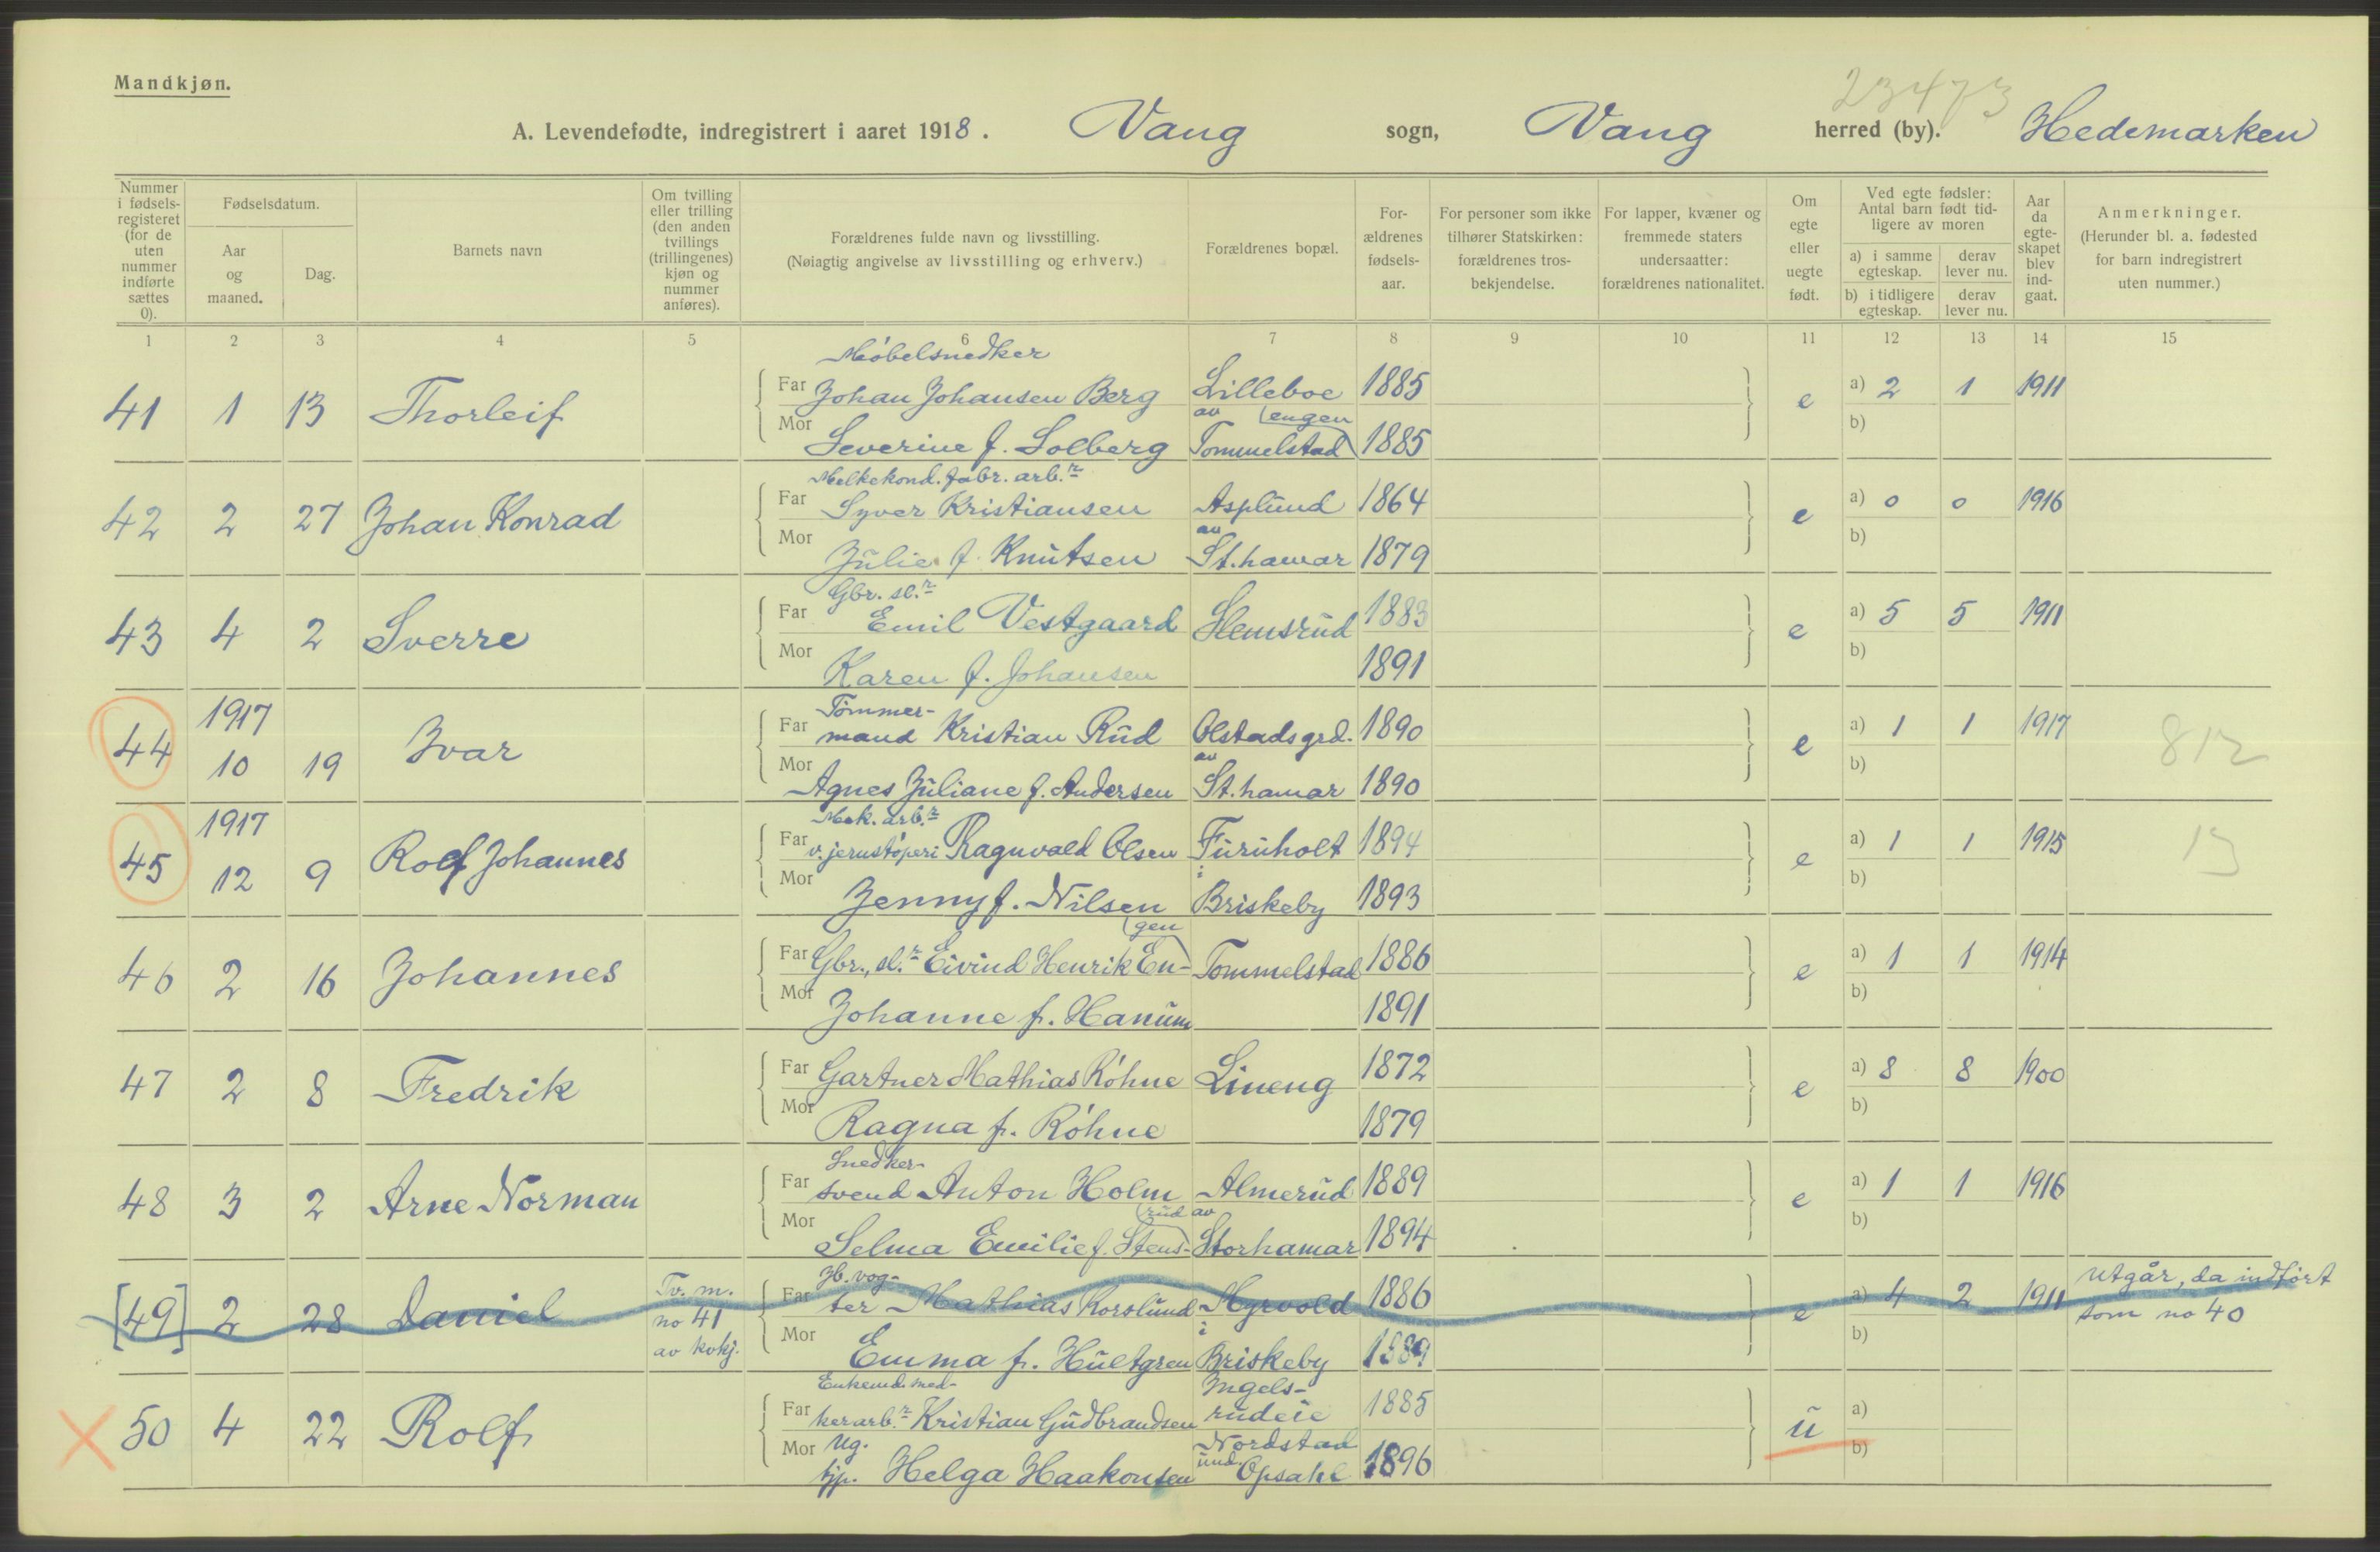 Mandkjøn.
23473
A. Levendefødte, indregistrert i aaret 1918. Vang sogn, Vang herred (by). Hedemarken
Nummer i fødsels-registeret (for de uten nummer indførte sættes 0).
Fødselsdatum.
Aar og maaned.
Dag.
Barnets navn
Om tvilling eller trilling (den anden tvillings (trillingenes) kjøn og nummer anføres).
Forældrenes fulde navn og livsstilling.
(Nøiagtig angivelse av livsstilling og erhverv.)
Forældrenes bopæl.
For-ældrenes fødsels-aar.
For personer som ikke tilhører Statskirken: forældrenes tros-bekjendelse.
For lapper, kvæner og fremmede staters undersaatter: forældrenes nationalitet.
Om egte eller uegte født.
Ved egte fødsler: Antal barn født tid-ligere av moren
a) i samme egteskap.
derav lever nu.
b) i tidligere egteskap.
derav lever nu.
Aar da egte-skapet blev ind-gaat.
Anmerkninger.
(Herunder bl. a. fødested for barn indregistrert uten nummer.)
1 2 3 4 5 6 7 8 9 10 11 12 13 14 15
Møbelsnedker
41 1 13 Thorleif Far Johan Johansen Berg Lilleboe 1885 e a) 2 1 1911
av engen b)
Mor Severine f. Solberg Tommelstad 1885
Melkekond. fabr. arb.r
42 2 27 Johan Konrad Far Syver Kristiansen Asplund 1864 e a) 0 0 1916
av b)
Mor Julie f. Knutsen St.hamar 1879
Gbr. sl.r
43 4 2 Sverre Far Emil Vestgaard Slemsrud 1883 e a) 5 5 1911
b)
Mor Karen f. Johansen 1891
1917 Tømmer-
44 10 19 Ivar Far mand Kristian Rud Olstadsgrd. 1890 e a) 1 1 1917 812
av b)
Mor Agnes Juliane f. Andersen St.hamar 1890
1917 Mek. arb.r
45 12 9 Rolf Johannes Far v. jernstøperi Ragnvald Olsen Furuholt 1894 e a) 1 1 1915 13
i b)
Mor Jenny f. Nilsen Briskeby 1893
gen
46 2 16 Johannes Far Gbr., sl.r Eivind Henrik En- Tommelstad 1886 e a) 1 1 1914
b)
Mor Johanne f. Hanum 1891
47 2 8 Fredrik Far Gartner Mathias Røhne Lineng 1872 e a) 8 8 1900
b)
Mor Ragna f. Røhne 1879
Snedker-
48 3 2 Arne Norman Far svend Anton Holm Almerud 1889 e a) 1 1 1916
rud av b)
Mor Selma Emilie f. Stens- Storhamar 1894
Jb. vog-
[49] 2 28 Daniel Tv. m. no 41 av kvkj. Far ter Mathias Korslund Myrvold 1886 e a) 4 2 1911 Utgår, da indført som no 40
i b)
Mor Emma f. Hultgren Briskeby 1889
Enkemd. sned- Ingels-
50 4 22 Rolf Far kerarb.r Kristian Gudbrandsen rudeie 1885 u a)
Ug. Nordstad b)
Mor tjp. Helga Haakonsen und. Opsahl 1896